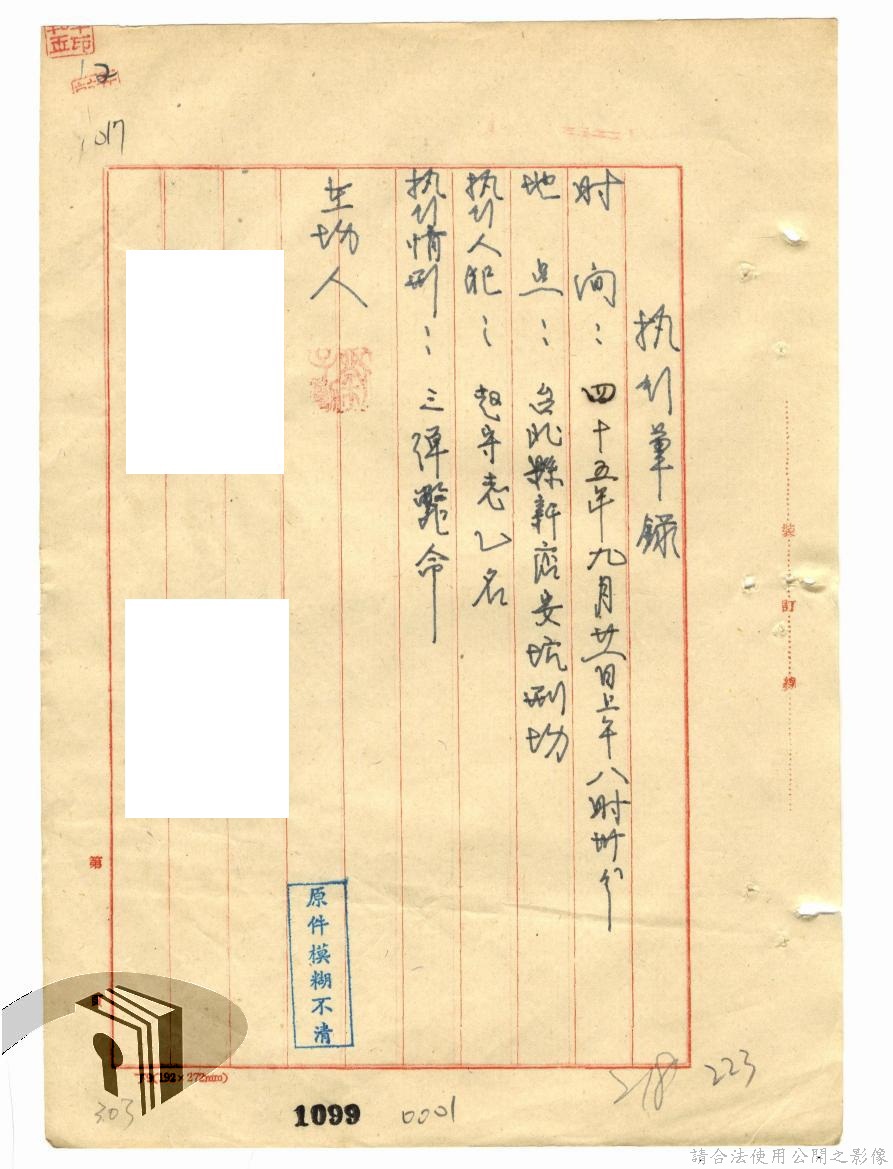 執刑筆錄
时间：四十五年九月廿八日上午八时卅分
地点：台北縣新店安坑刑場
执刑人犯：赵守志乙名
执刑情形：三弹斃命
在場人
原件模糊不清
裝訂線
第
017
(192×272mm)
303
1099
0001
223
請合法使用公開之影像